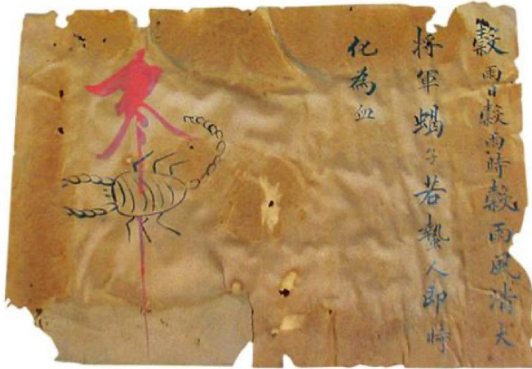 穀雨日穀雨時穀雨風清大
將軍蝎子若螫人即時
化為血